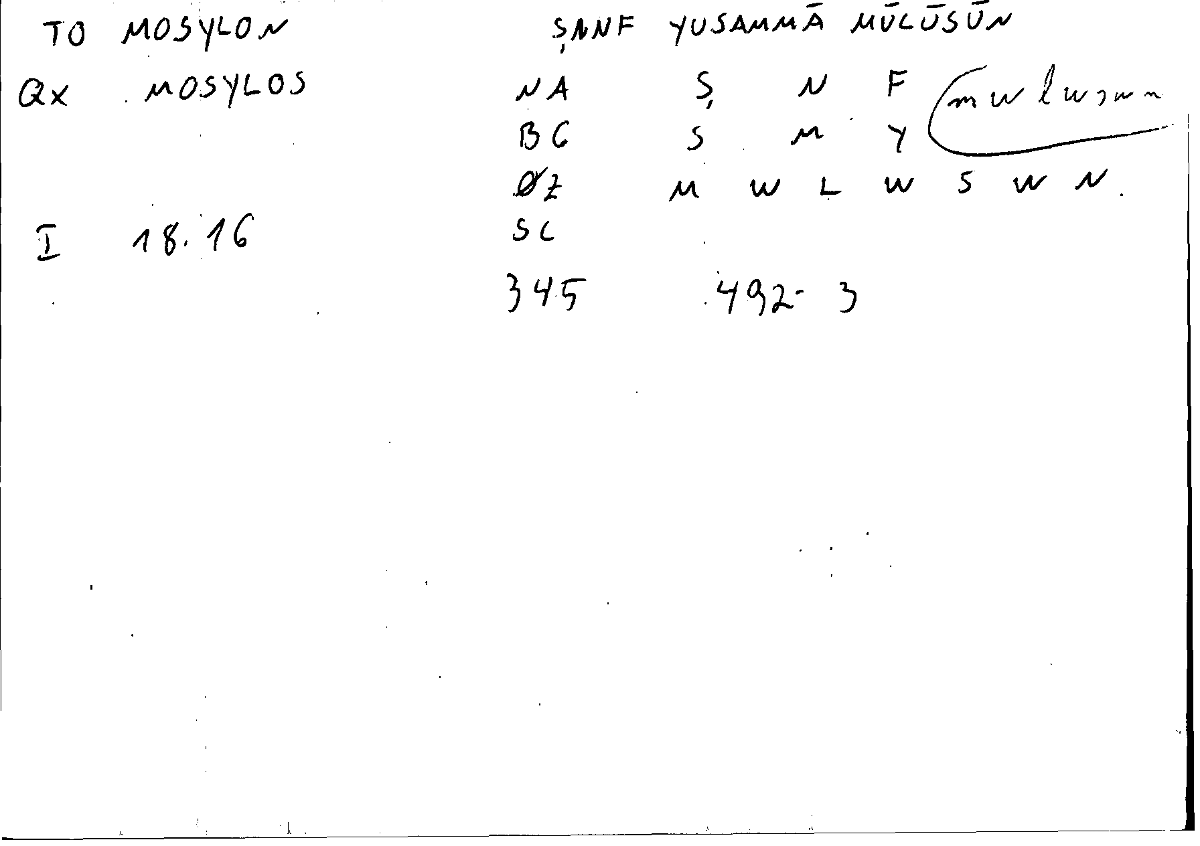 TO MOSYLON ṢNNF YUSAMMĀ MŪLŪSŪN
Qx MOSYLOS NA Ṣ N F mwlwswn
BC S M Y
ØZ M W L W S W N
I 18.16 SC
345 492-3